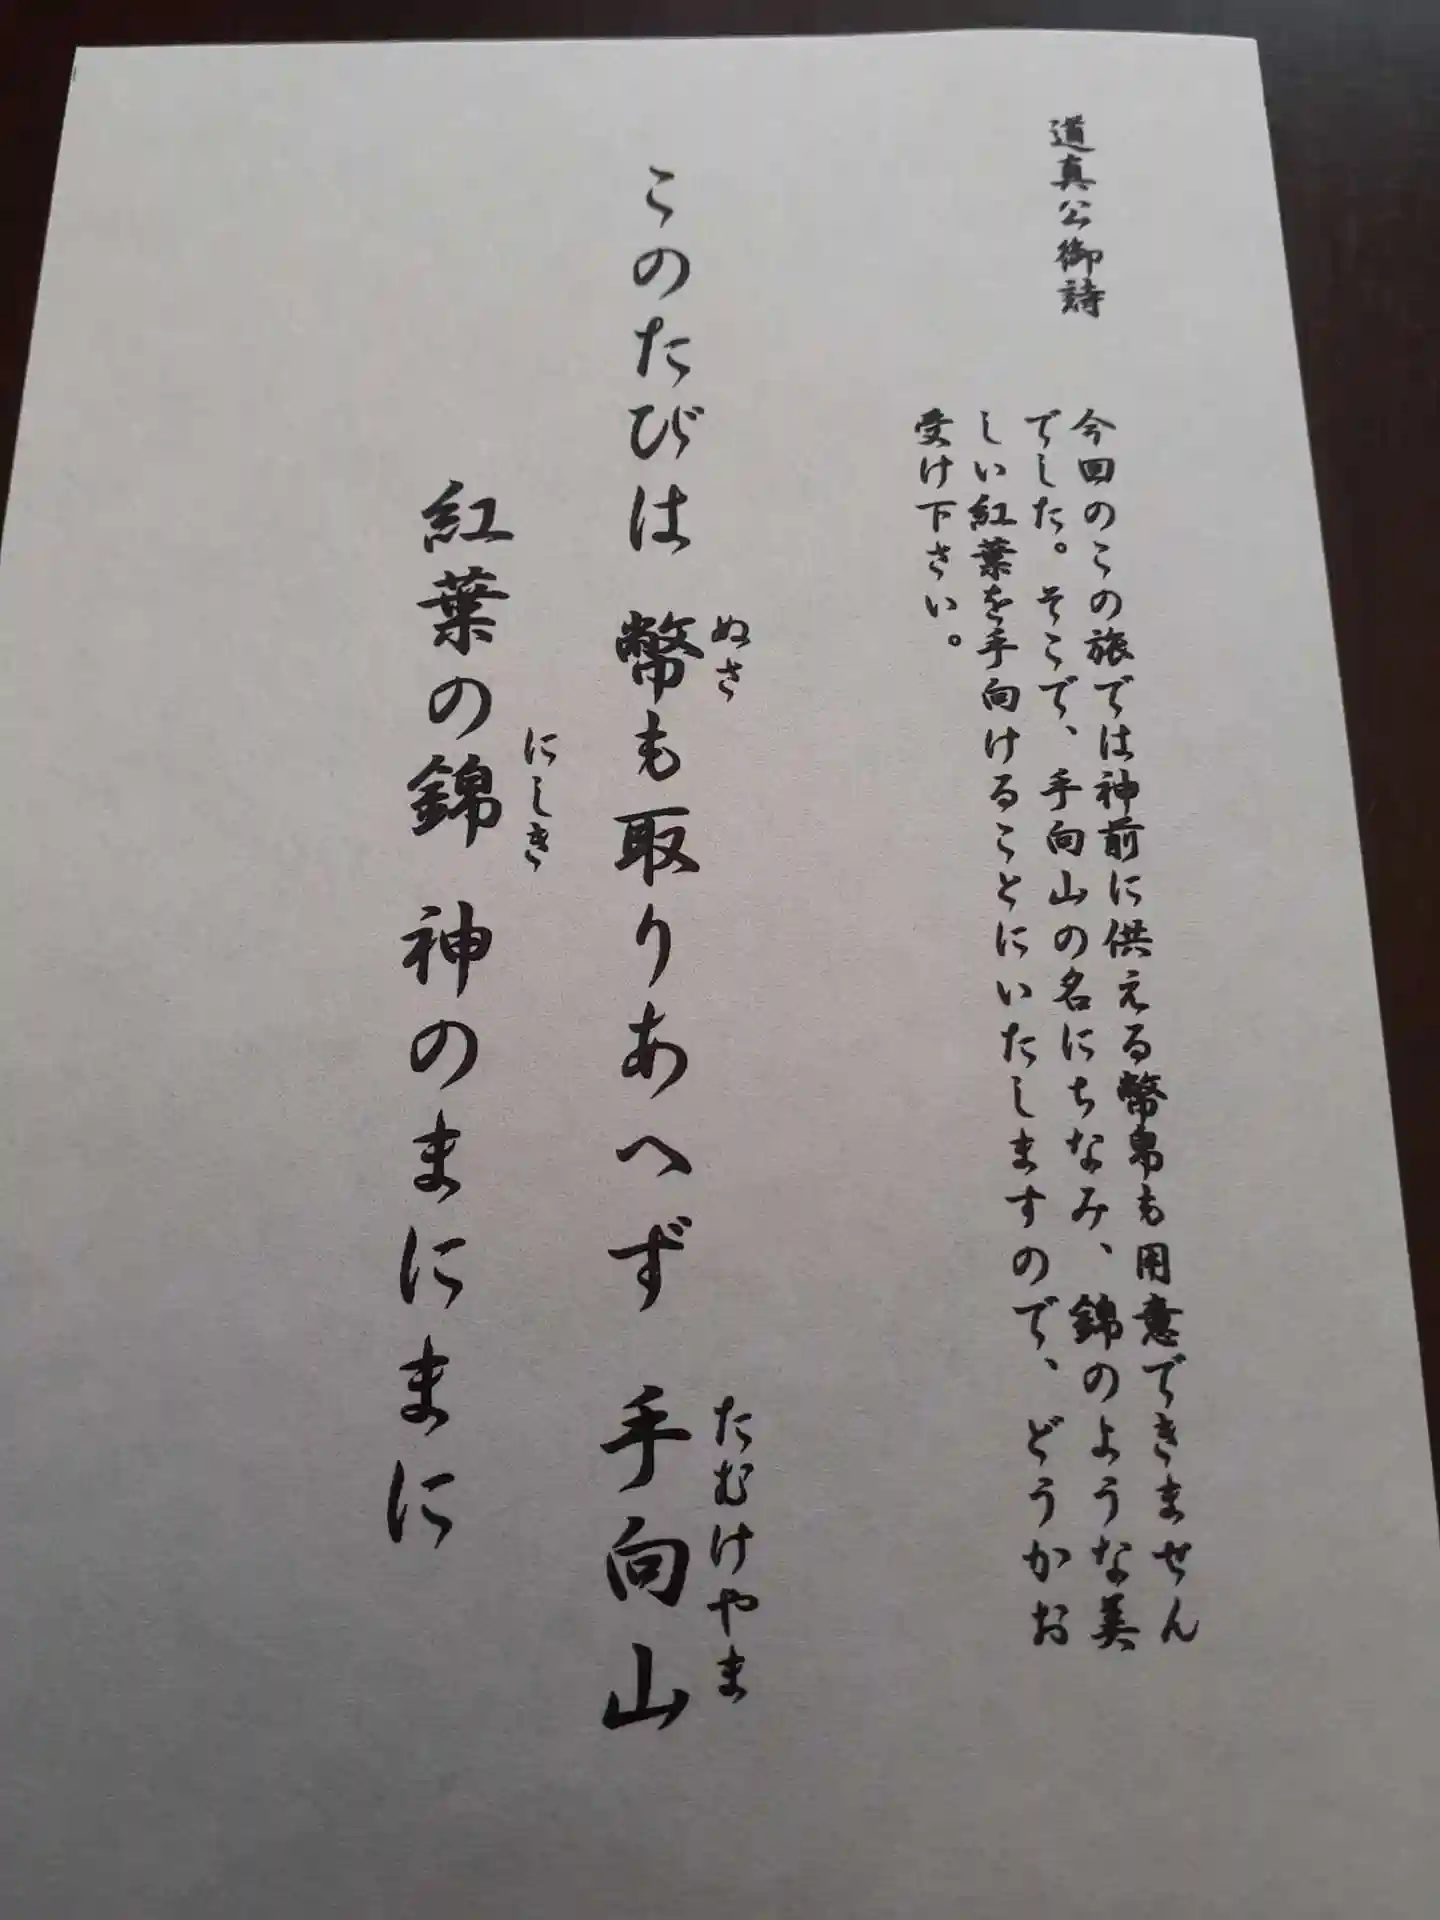 道真公御詩
今回のこの旅では神前に供える幣帛も用意できません
でした。そこで、手向山の名にちなみ、錦のような美
しい紅葉を手向けることにいたしますので、どうかお
受け下さい。
このたびは 幣も取りあへず 手向山
ぬさ
たむけやま
紅葉の錦 神のまにまに
にしき